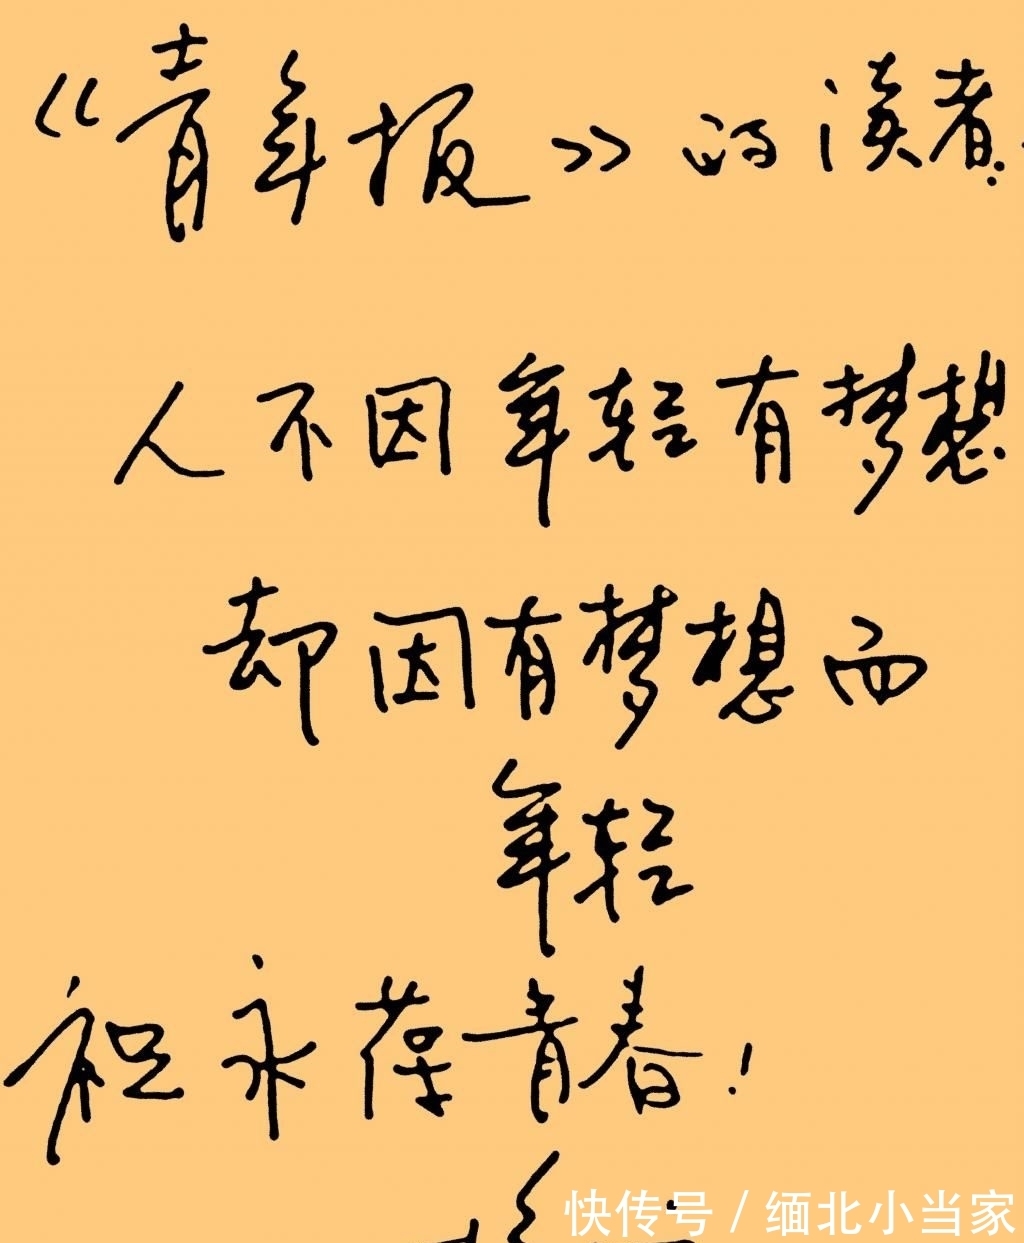 《青年报》的读者:
人不因年轻有梦想
却因有梦想而
年轻
祝永葆青春!
快传号/缅北小当家